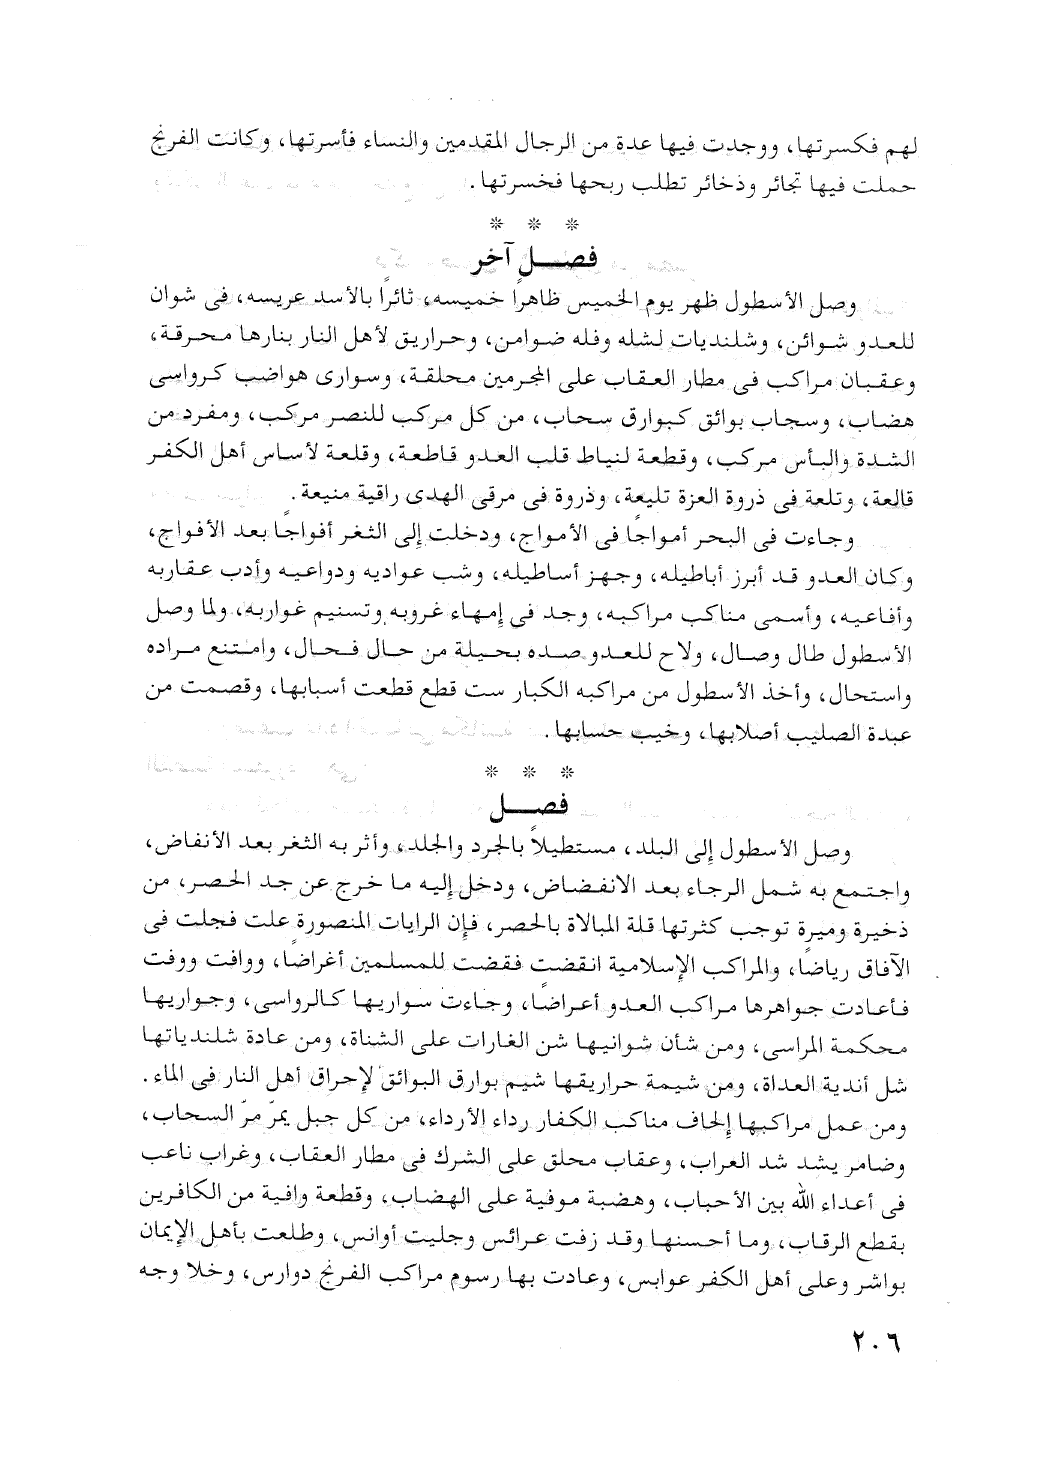 لهم فكسرتها، ووجدت فيها عدة من الرجال المقدمين والنساء فأسرتها، وكانت الفرنج
حملت فيها تجائر وذخائر تطلب ربحها فخسرتها.
* * *
فصل آخر
وصل الأسطول ظهر يوم الخميس ظاهراً خميسه، ثائراً بالأسد عريسه، فى شوان
للعدو شوائن، وشلنديات لشله وفله ضوامن، وحراريق لأهل النار بنارها محرقة،
وعقبان مراكب فى مطار العقاب على المجرمين محلقة، وسوارى هواضب كرواسى
هضاب، وسحاب بوائق كبوارق سحاب، من كل مركب للنصر مركب، ومفرد من
الشدة والبأس مركب، وقطعة لنياط قلب العدو قاطعة، وقلعة لأساس أهل الكفر
قالعة، وتلعة فى ذروة العزة تليعة، وذروة فى مرقى الهدى راقية منيعة.
وجاءت فى البحر أمواجاً فى الأمواج، ودخلت إلى الثغر أفواجاً بعد الأفواج،
وكان العدو قد أبرز أباطيله، وجهز أساطيله، وشب عواديه ودواعيه وأدب عقاربه
وأفاعيه، وأسمى مناكب مراكبه، وجد فى إمهاء غروبه وتسنيم غواربه، ولما وصل
الأسطول طال وصال، ولاح للعدو صده بحيلة من حال فحال، وامتنع مراده
واستحال، وأخذ الأسطول من مراكبه الكبار ست قطع قطعت أسبابها، وقصمت من
عبدة الصليب أصلابها، وخيب حسابها.
* * *
فصل
وصل الأسطول إلى البلد، مستطيلاً بالجرد والجلد، وأثر به الثغر بعد الأنفاض،
واجتمع به شمل الرجاء بعد الانفضاض، ودخل إليه ما خرج عن جد الحصر، من
ذخيرة وميرة توجب كثرتها قلة المبالاة بالحصر، فإن الرايات المنصورة علت فجلت فى
الآفاق رياضاً، والمراكب الإسلامية انقضت فقضت للمسلمين أغراضاً، ووافت ووفت
فأعادت جواهرها مراكب العدو أعراضاً، وجاءت سواريها كالرواسى، وجواريها
محكمة المراسى، ومن شأن شوانيها شن الغارات على الشناة، ومن عادة شلندياتها
شل أندية العداة، ومن شيمة حراريقها شيم بوارق البوائق لإحراق أهل النار فى الماء.
ومن عمل مراكبها إلحاف مناكب الكفار رداء الأرداء، من كل جبل يمرّ مرّ السحاب،
وضامر يشد شد العراب، وعقاب محلق على الشرك فى مطار العقاب، وغراب ناعب
فى أعداء الله بين الأحباب، وهضبة موفية على الهضاب، وقطعة وافية من الكافرين
بقطع الرقاب، وما أحسنها وقد زفت عرائس وجليت أوانس، وطلعت بأهل الإيمان
بواشر وعلى أهل الكفر عوابس، وعادت بها رسوم مراكب الفرنج دوارس، وخلا وجه
٢٠٦